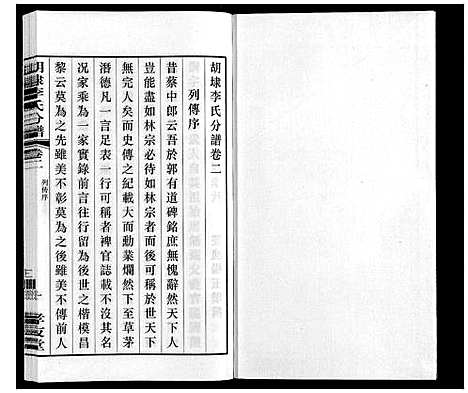 胡埭李氏分譜卷二
列傳序
昔蔡中郎云吾於郭有道碑銘庶無愧辭然天下人
豈能盡如林宗必待如林宗者而可稱於世天下
無完人矣而史傳之紀載大而勳業爛然下至草茅
潛德凡一言足表一行可稱者裨官誌載不沒其名
况家乘為一家實錄前言往行留為後世之楷模昌
黎云莫為之先雖美不彰莫為之後雖美不傳前人
胡埭李氏分譜
卷二
列傳序